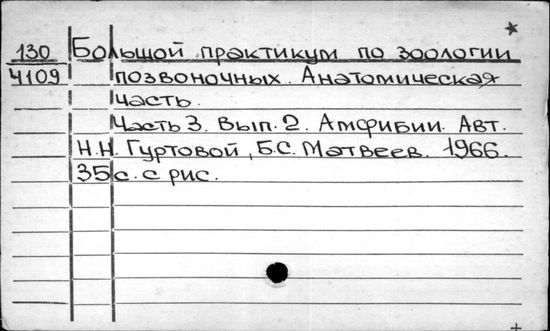 130 Большой практикум по зоологии
4109 позвоночных. Анатомическая
часть.
Часть 3. Вып. 2. Амфибии. Авт.
Н.Н. Гуртовой, Б.С. Матвеев. 1966.
35 с. с рис.